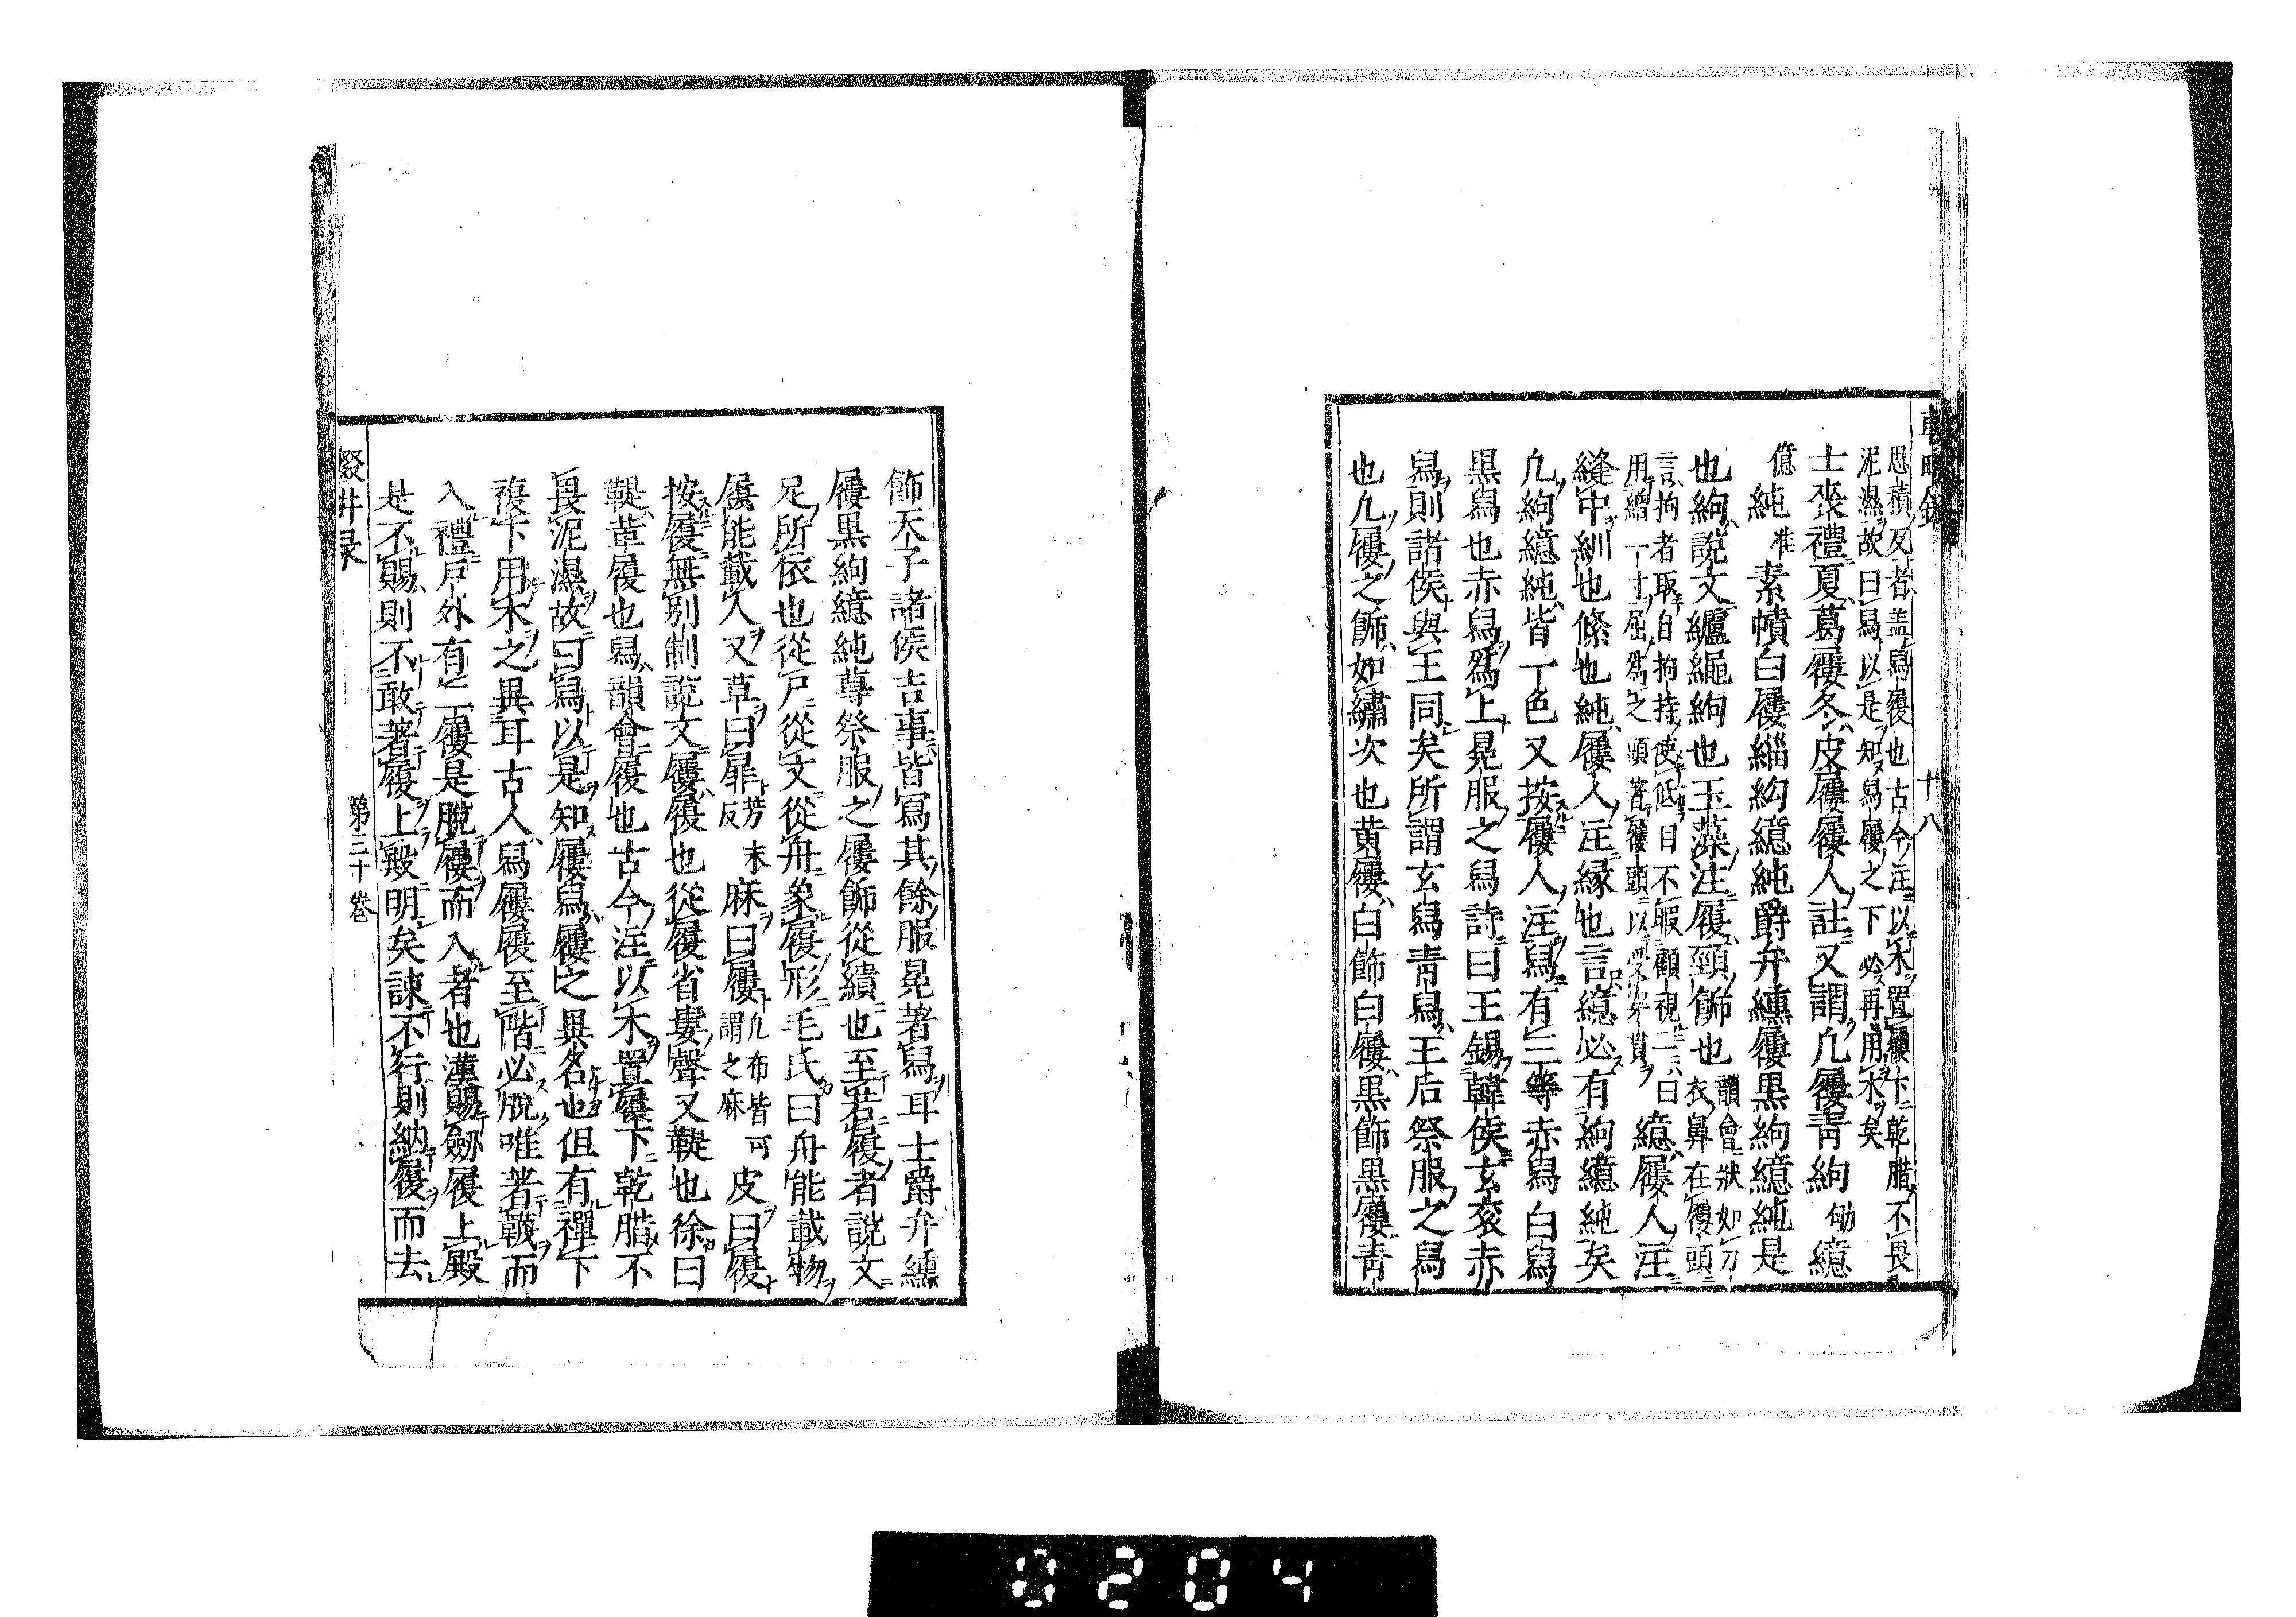 思積反者盖舄履也古今注以木置履下乾腊不畏
泥濕故曰舄以是知舄屨之下必再用木矣
士喪禮夏葛屨冬皮屨屨人註又謂凡屨青絇劬繶
億純准素幘白屨緇絇繶純爵弁纁屨黒絇繶純是
也絇說文纑繩絇也玉藻注履頭飾也韻會狀如刀
衣鼻在屨頭
言拘者取自拘持使低目不暇顧視一云曰
用繒一寸屈爲之頭著屨頭以受穿貫
繶屨人注
縫中紃也絛也純屨人注緣也言繶必有絇繶純矣
凡絇繶純皆一色又按屨人注舄有三等赤舄白舄
黒舄也赤舄爲上冕服之舄詩曰王錫韓侯玄袞赤
舄則諸侯與王同矣所謂玄舄青舄王后祭服之舄
也凡屨之飾如繡次也黄屨白飾白屨黒飾黒屨青
十八
飾天子諸侯吉事皆舄其餘服冕著舄耳士爵弁纁
屨黒絇繶純尊祭服之屨飾從繢也至若履者說文
足所依也從尸從文從舟象履形毛氏曰舟能載物
履能載人又草曰屝芳未反麻曰屨凡布皆可謂之麻皮曰履
按履無别制說文屨履也從履省婁聲又鞮也徐曰
鞮革履也舄韻會履也古今注以木置履下乾腊不
畏泥濕故曰舄以是知屨舄屨之異名也但有禪下
複下用木之異耳古人舄屨履至階必脫唯著韈而
入禮戸外有二屨是脫屨而入者也漢賜劒履上殿
是不賜則不敢著履上殿明矣諫不行則納履而去
輟耕录
第三十卷
0204